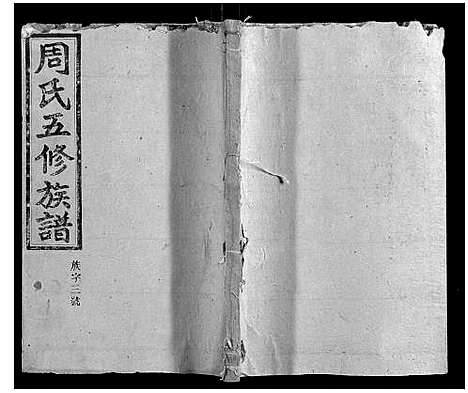 周氏五修族譜
族字三號